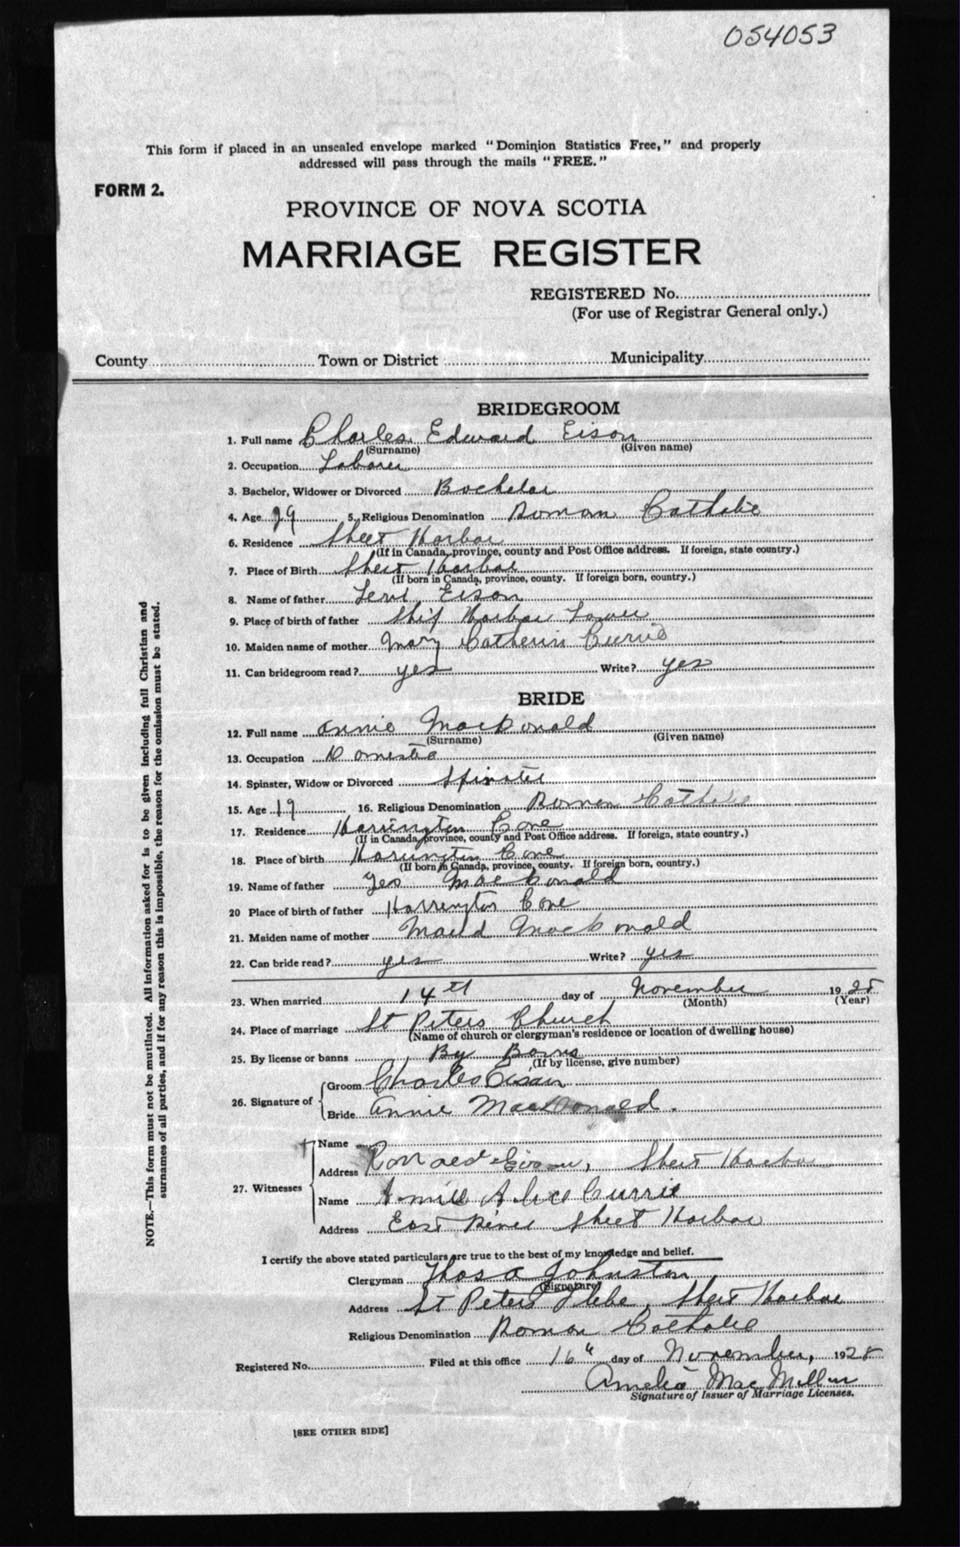 054053
This form if placed in an unsealed envelope marked "Dominion Statistics Free," and properly
addressed will pass through the mails "FREE."
FORM 2.
PROVINCE OF NOVA SCOTIA
MARRIAGE REGISTER
REGISTERED No.
(For use of Registrar General only.)
County Town or District Municipality
BRIDEGROOM
1. Full name Charles Edward Eison
(Surname) (Given name)
2. Occupation Laborer
3. Bachelor, Widower or Divorced Bachelor
4. Age 29 5. Religious Denomination Roman Catholic
6. Residence Sheet Harbor
(If in Canada, province, county and Post Office address. If foreign, state country.)
7. Place of Birth Sheet Harbor
(If born in Canada, province, county. If foreign born, country.)
8. Name of father Levi Eison
9. Place of birth of father Ship Harbor Lower
10. Maiden name of mother Mary Catherin Currie
11. Can bridegroom read? yes Write? yes
BRIDE
12. Full name Annie MacDonald
(Surname) (Given name)
13. Occupation Domestic
14. Spinster, Widow or Divorced Spinster
15. Age 19 16. Religious Denomination Roman Catholic
17. Residence Harrington Cove
(If in Canada, province, county and Post Office address. If foreign, state country.)
18. Place of birth Harrington Cove
(If born in Canada, province, county. If foreign born, country.)
19. Name of father Geo MacDonald
20 Place of birth of father Harrington Cove
21. Maiden name of mother Maud MacDonald
22. Can bride read? yes Write? yes
23. When married 14th day of November 1928
(Month) (Year)
24. Place of marriage St Peters Church
(Name of church or clergyman's residence or location of dwelling house)
25. By license or banns By Banns
(If by license, give number)
26. Signature of Groom Charles Eisan
Bride Annie MacDonald.
27. Witnesses Name
Address Ronald Eisan, Sheet Harbor
Name Alice Currie
Address East River Sheet Harbor
I certify the above stated particulars are true to the best of my knowledge and belief.
Clergyman Thos A Johnston
(Signature)
Address St Peters Glebe, Sheet Harbor
Religious Denomination Roman Catholic
Registered No. Filed at this office 16" day of November, 1928
Amelia MacMillan
Signature of Issuer of Marriage Licenses.
[SEE OTHER SIDE]
NOTE.—This form must not be mutilated. All information asked for is to be given including full Christian and
surnames of all parties, and if for any reason this is impossible, the reason for the omission must be stated.